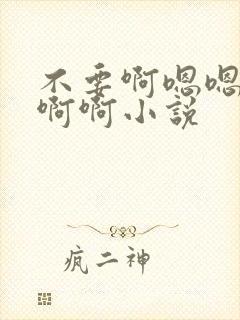 不要啊嗯嗯
啊啊小說
疯二神